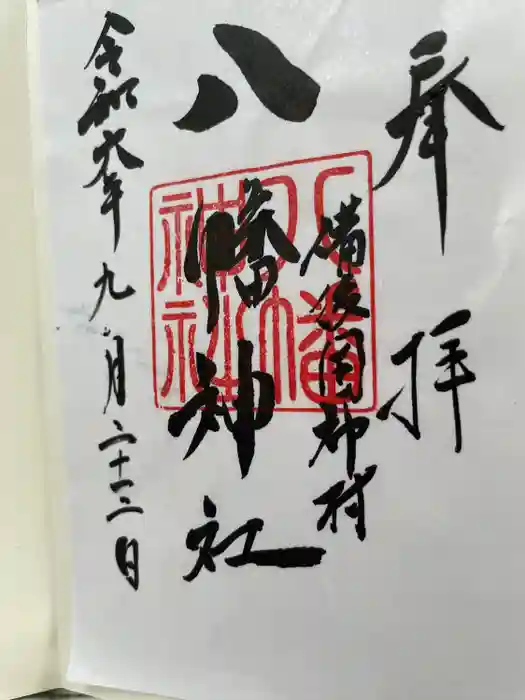 奉拝
備後国御村
八幡神社
令和六年九月二十三日
八幡
神社